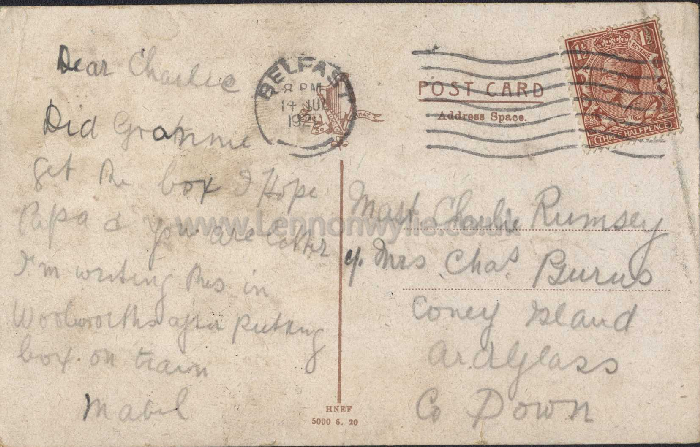 Dear Charlie
Did Grannie
get the box I Hope
Papa & you are better
I'm writing this in
Woolworths after putting
box on train
Mabel
BELFAST
8 PM
14 JU
192
POST CARD
Address Space.
Mast Charlie Rumsey
c/o Mrs Chas Burns
Coney Island
Ardglass
Co Down
HNRF
5000 6. 20
1½
THREE HALFPENCE
www.Lennonwylie.co.uk